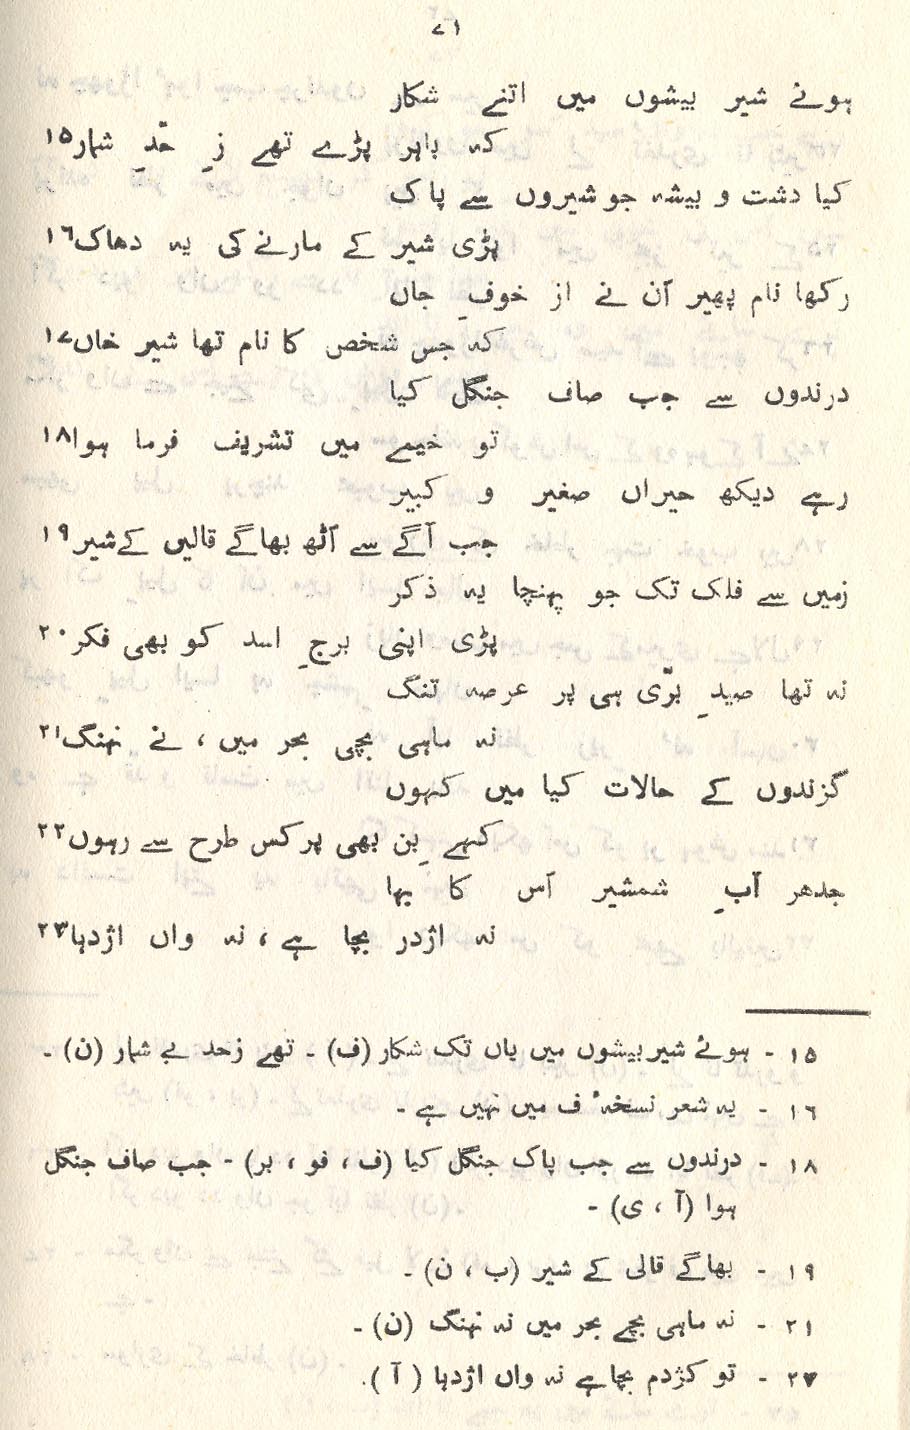 ۷۱
ہوئے شیر بیشوں میں اتنے شکار
کہ باہر پڑے تھے زِ حّدِ شمار ۱۵
کیا دشت و بیشہ جو شیروں سے پاک
پڑی شیر کے مارنے کی یہ دھاک ۱۶
رکھا نام پھیر اُن نے از خوفِ جاں
کہ جس شخص کا نام تھا شیر خاں ۱۷
درندوں سے جب صاف جنگل کیا
تو خیمے میں تشریف فرما ہوا ۱۸
رہے دیکھ حیراں صغیر و کبیر
جب آگے سے اُٹھ بھاگے قالیں کے شیر ۱۹
زمیں سے فلک تک جو پہنچا یہ ذکر
پڑی اپنی برجِ اسد کو بھی فکر ۲۰
نہ تھا صیدِ برّی ہی پر عرصہ تنگ
نہ ماہی بچی بحر میں ، نے نہنگ ۲۱
گزندوں کے حالات کیا میں کہوں
کہے بِن بھی پر کس طرح سے رہوں ۲۲
جدھر آبِ شمشیر اُس کا بہا
نہ اژدر بچا ہے ، نہ واں اژدہا ۲۳
۱۵ - ہوئے شیر بیشوں میں یاں تک شکار (ف) - تھے زحد بے شمار (ن) -
۱۶ - یہ شعر نسخہٴ ف میں نہیں ہے -
۱۸ - درندوں سے جب پاک جنگل کیا (ف ، فو ، بر) - جب صاف جنگل
ہوا (آ ، ی) -
۱۹ - بھاگے قالی کے شیر (ب ، ن) -
۲۱ - نہ ماہی بچے بحر میں نہ نہنگ (ن) -
۲۳ - تو کژدم بچا ہے نہ واں اژدہا ( آ ) .